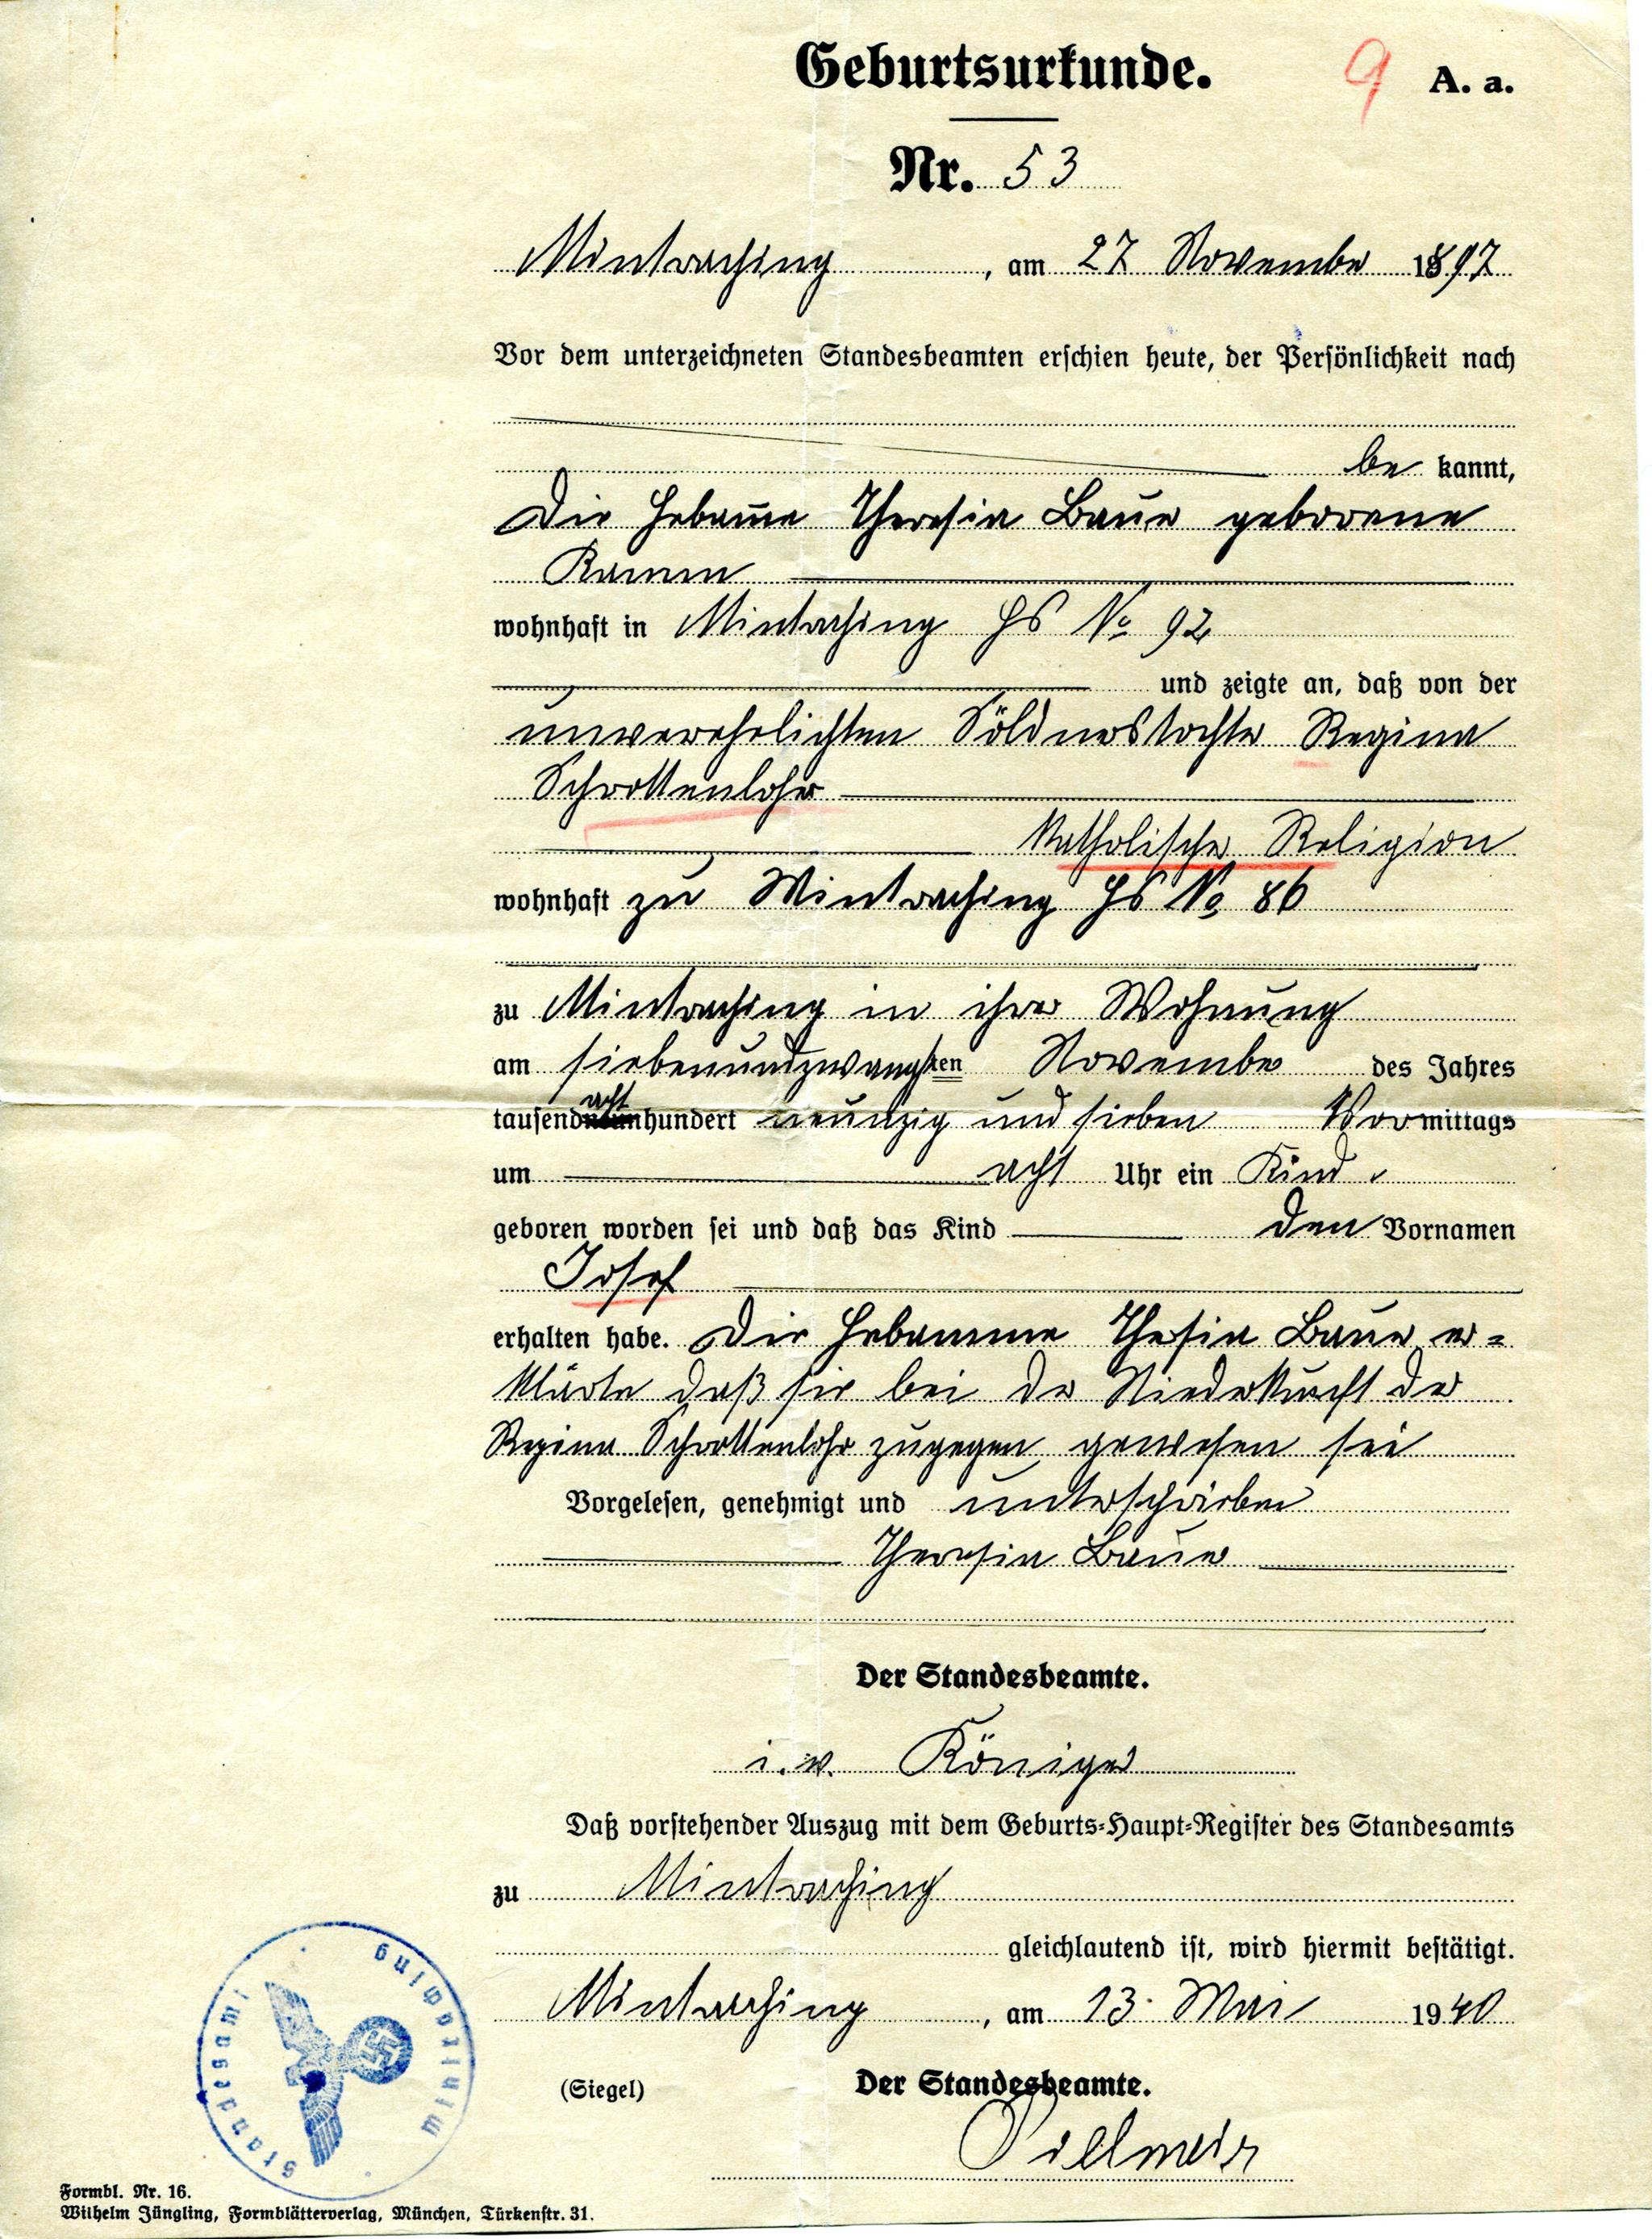 Geburtsurkunde.
9 A. a.
Nr. 53
Mintraching, am 27 November 1897
Vor dem unterzeichneten Standesbeamten erschien heute, der Persönlichkeit nach
be kannt,
die Hebam̅e Theresia Baur geborene
wohnhaft in Mintraching Hs No 92
und zeigte an, daß von der
unverehelichten Söldnerstochter Regina
Schrottenloher
katholischer Religion
wohnhaft zu Mintraching Hs No 86
zu Mintraching in ihrer Wohnung
am siebenundzwangsten November des Jahres
tausendachthundert neunzig und sieben Vormittags
um acht Uhr ein Kind
geboren worden sei und daß das Kind den Vornamen
Josef
erhalten habe. Die Hebamme Thesia Baur er=
klärte daß sie bei der Niederkunft der
Regina Schrottenloher zugegen gewesen sei
Vorgelesen, genehmigt und unterschrieben
Theresia Baur
Der Standesbeamte.
i. v. Königer
Daß vorstehender Auszug mit dem Geburts-Haupt-Register des Standesamts
zu Mintraching
gleichlautend ist, wird hiermit bestätigt.
Mintraching, am 13. Mai 1940
(Siegel) Der Standesbeamte.
Standesamt Mintraching
Formbl. Nr. 16.
Wilhelm Jüngling, Formblätterverlag, München, Türkenstr. 31.